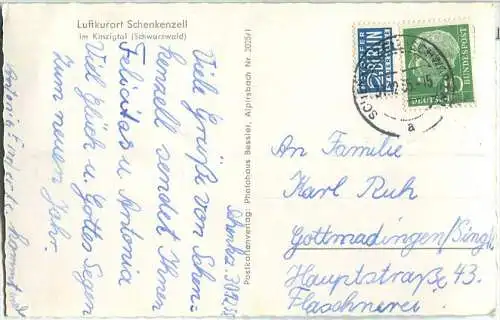 Luftkurort Schenkenzell
im Kinzigtal (Schwarzwald)
Viele Grüße von Schen-
kenzell sendet Ihnen
Felicitas u. Antonia
Viel Glück u. Gottes Segen
zum neuen Jahr.
Postkartenverlag: Photohaus Bessler, Alpirsbach Nr. 2025/1
NOTOPFER
2 BERLIN
STEUERMARKE
10
DEUTSCHE
BUNDESPOST
a
An Familie
Karl Ruh
Gottmadingen/Singh
Hauptstraße 43.
Flaschnerei.